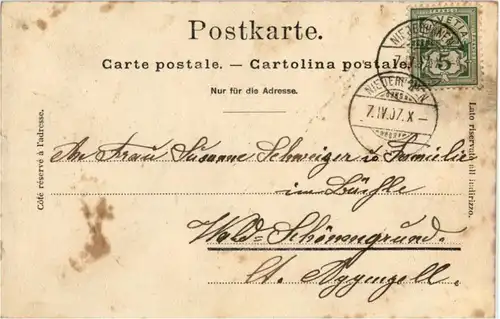 Postkarte.
Carte postale. — Cartolina postale.
Nur für die Adresse.
HELVETIA
5
NIEDERURNEN
7.IV.07.X—
Côté réservé à l'adresse.
Lato riservato all indirizzo.
An Frau Susanne Schweizer u Familie
im Büchle
Wald=Schönengrund.
Ct. Appenzell.